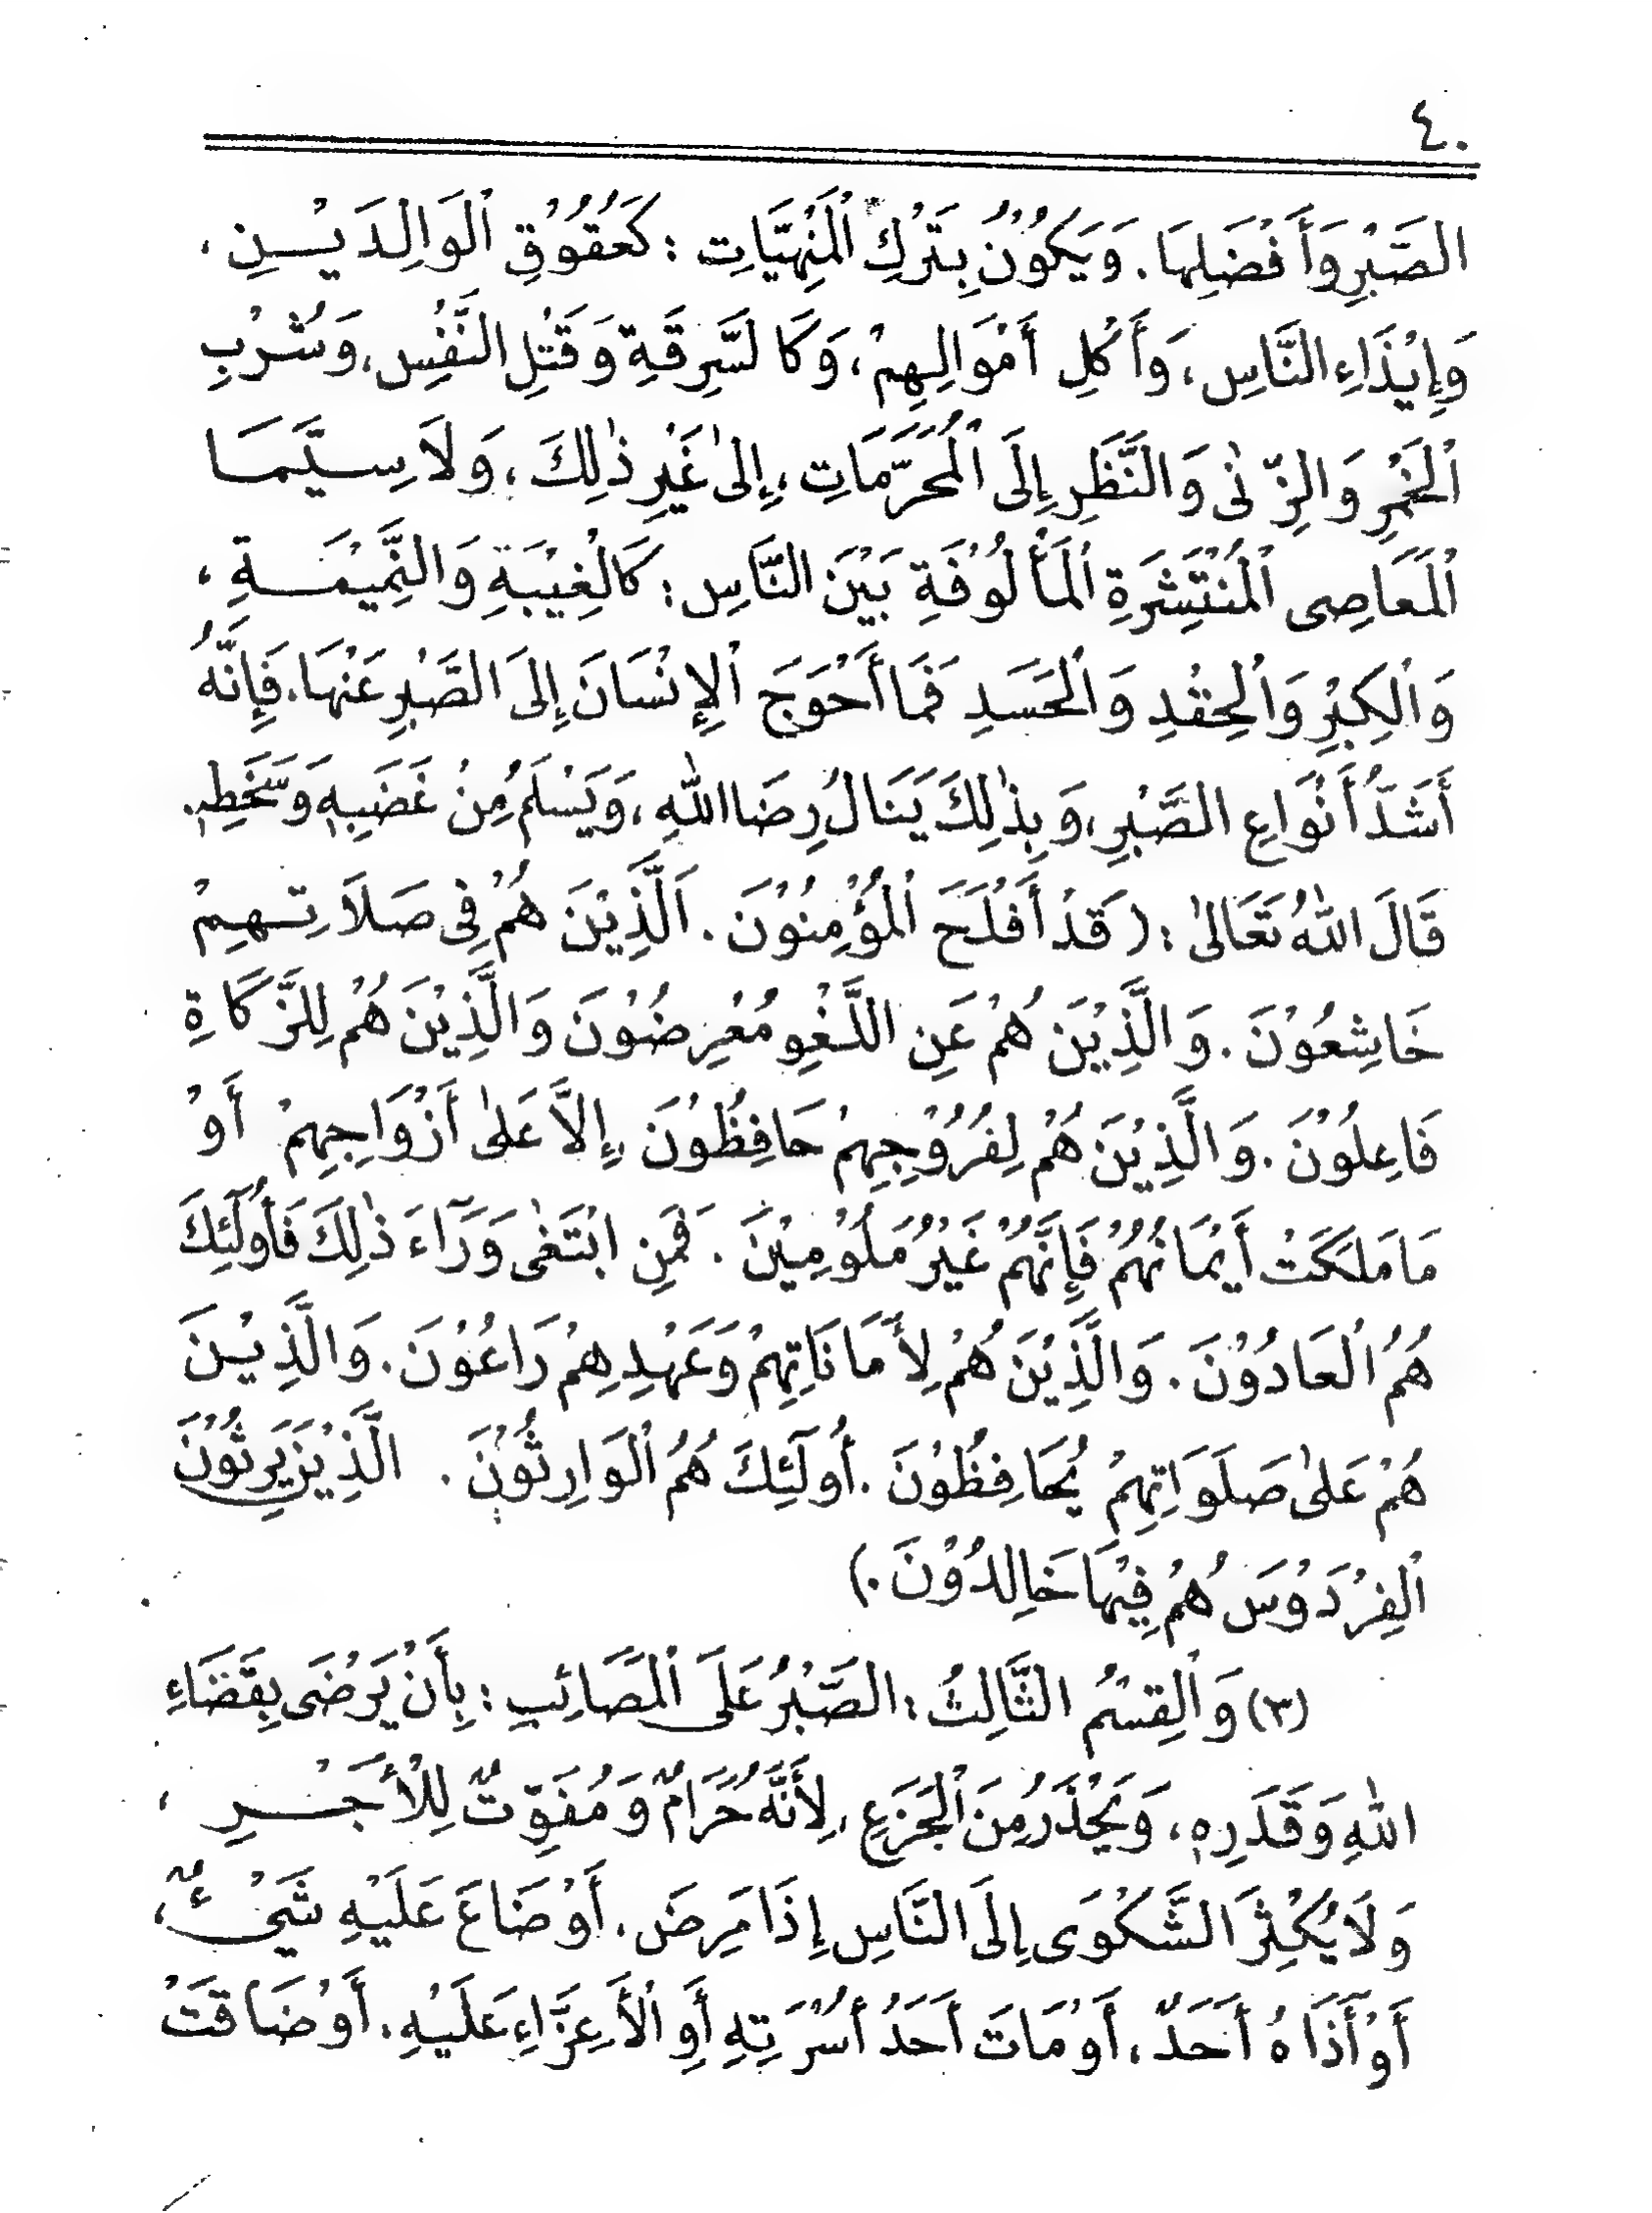 ٤٠
الصَّبْرِ وَأَفْضَلِهَا. وَيَكُوْنُ بِتَرْكِ الْمَنْهِيَّاتِ : كَعُقُوْقِ الْوَالِدَيْنِ ،
وَإِيْذَاءِ النَّاسِ، وَأَكْلِ أَمْوَالِهِمْ، وَكَالسَّرِقَةِ وَقَتْلِ النَّفْسِ، وَشُرْبِ
الْخَمْرِ وَالزِّنٰى وَالنَّظَرِ إِلَى الْمُحَرَّمَاتِ، إِلىٰ غَيْرِ ذٰلِكَ، وَلَا سِيَّمَا
الْمَعَاصِى الْمُنْتَشِرَةِ الْمَأْلُوْفَةِ بَيْنَ النَّاسِ: كَالْغِيْبَةِ وَالنَّمِيْمَةِ ،
وَالْكِبْرِ وَالْحِقْدِ وَالْحَسَدِ فَمَا أَحْوَجَ الْإِنْسَانَ إِلىَ الصَّبْرِ عَنْهَا. فَإِنَّهُ
أَشَدُّ أَنْوَاعِ الصَّبْرِ، وَبِذٰلِكَ يَنَالُ رِضَا اللهِ، وَيَسْلَمُ مِنْ غَضَبِهِ وَسَخَطِهِ.
قَالَ اللهُ تَعَالىٰ : (قَدْ أَفْلَحَ الْمُؤْمِنُوْنَ. اَلَّذِيْنَ هُمْ فِى صَلَاتِهِمْ
خَاشِعُوْنَ. وَالَّذِيْنَ هُمْ عَنِ اللَّغْوِ مُعْرِضُوْنَ وَالَّذِيْنَ هُمْ لِلزَّكَاةِ
فَاعِلُوْنَ. وَالَّذِيْنَ هُمْ لِفُرُوْجِهِمْ حَافِظُوْنَ، إِلاَّ عَلىٰ أَزْوَاجِهِمْ أَوْ
مَا مَلَكَتْ أَيْمَانُهُمْ فَإِنَّهُمْ غَيْرُ مَلُوْمِيْنَ. فَمَنِ ابْتَغٰى وَرَآءَ ذٰلِكَ فَأُولٓئِكَ
هُمُ الْعَادُوْنَ. وَالَّذِيْنَ هُمْ لِأَمَانَاتِهِمْ وَعَهْدِهِمْ رَاعُوْنَ. وَالَّذِيْنَ
هُمْ عَلىٰ صَلَوَاتِهِمْ يُحَافِظُوْنَ. أُولٓئِكَ هُمُ الْوَارِثُوْنَ. الَّذِيْنَ يَرِثُوْنَ
الْفِرْدَوْسَ هُمْ فِيْهَا خَالِدُوْنَ.)
(٣) وَالْقِسْمُ الثَّالِثُ : الصَّبْرُ عَلَى الْمَصَائِبِ : بِأَنْ يَرْضَى بِقَضَاءِ
اللهِ وَقَدَرِهِ، وَيَحْذَرُ مِنَ الْجَزَعِ، لِأَنَّهُ حَرَامٌ وَمُفَوِّتٌ لِلْأَجْرِ ،
وَلَا يُكْثِرَ الشَّكْوَى إِلَى النَّاسِ إِذَا مَرِضَ. أَوْ ضَاعَ عَلَيْهِ شَيْئٌ،
أَوْ أَذَاهُ أَحَدٌ، أَوْ مَاتَ أَحَدُ أُسْرَتِهِ أَوِ الْأَعِزَّاءِ عَلَيْهِ. أَوْ ضَاقَتْ